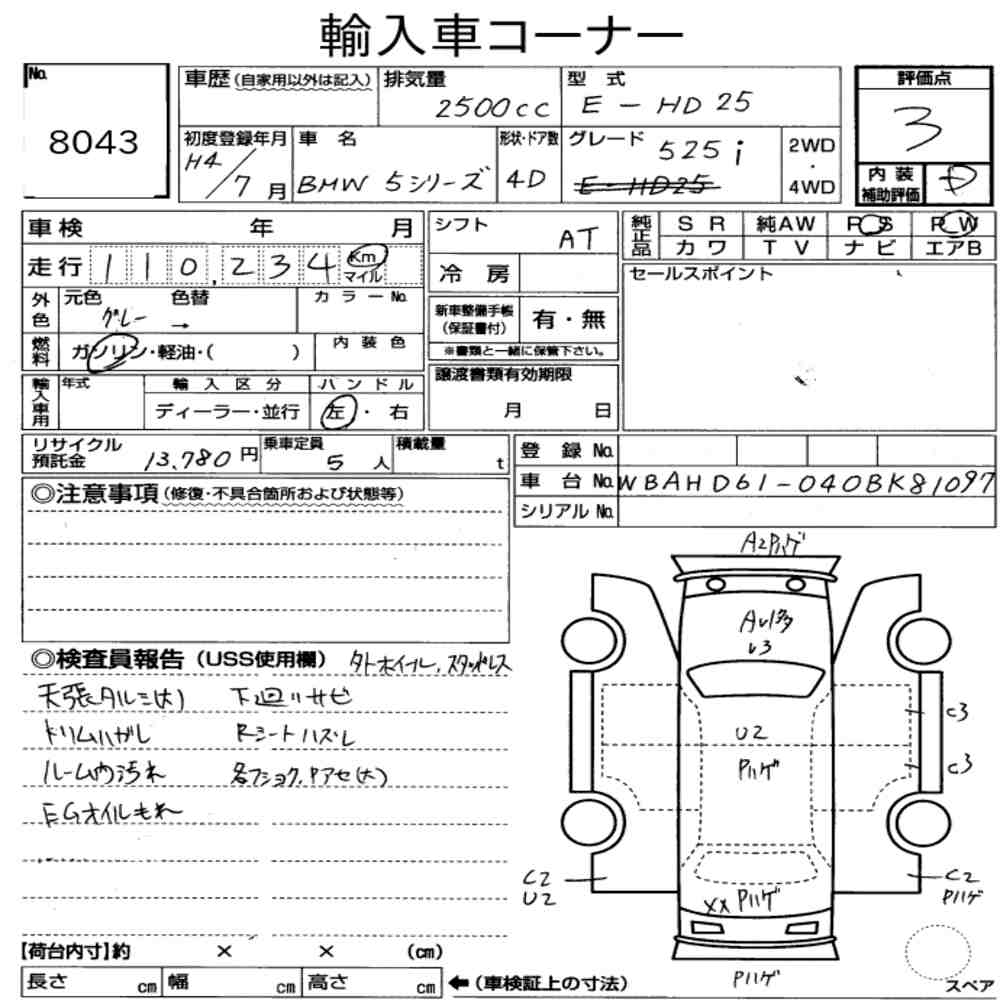 輸入車コーナー
No.
8043
車歴(自家用以外は記入)
排気量
2500cc
型 式
E-HD25
評価点
3
初度登録年月
H4/7月
車 名
BMW 5シリーズ
形状・ドア数
4D
グレード
525i
E-HD25
2WD
・
4WD
内 装
補助評価
D
車検 年 月
走行 110,234 Km
マイル
シフト
AT
冷 房
純正品
SR 純AW PS PW
カワ TV ナビ エアB
外色
元色 色替
グレー →
カラーNo.
新車整備手帳
(保証書付)
有・無
※書類と一緒に保管下さい。
セールスポイント
燃料
ガソリン・軽油・( )
内装色
輸入車用
年式
輸入区分
ディーラー・並行
ハンドル
左・右
譲渡書類有効期限
月 日
リサイクル
預託金
13,780円
乗車定員
5人
積載量
t
登 録 No.
車 台 No. WBAHD61-040BK81097
シリアル No.
◎注意事項(修復・不具合箇所および状態等)
◎検査員報告(USS使用欄) タトホイール、スタッドレス
天張タルミ(大) 下廻リサビ
トリムハガレ Rシートハズレ
ルーム内汚れ
EGオイルもれ
A2Pハゲ
U2
Pハゲ
C3
C3
C2
U2
C2
Pハゲ
XX Pハゲ
Pハゲ
スペア
【荷台内寸】約 × × (cm)
長さ cm 幅 cm 高さ cm ←(車検証上の寸法)